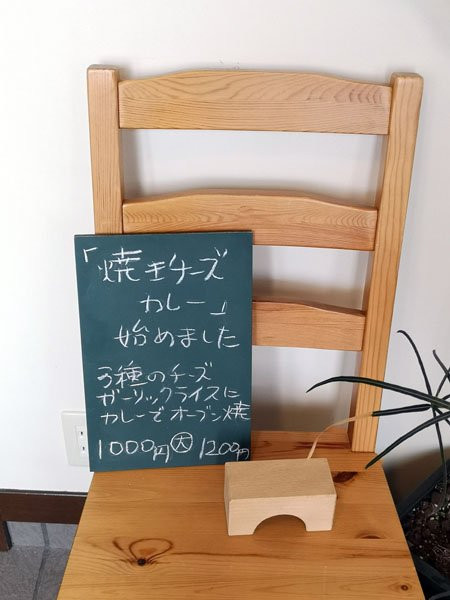 「焼きチーズ
カレー」
始めました
3種のチーズ
ガーリックライスに
カレーでオーブン焼
1000円大1200円